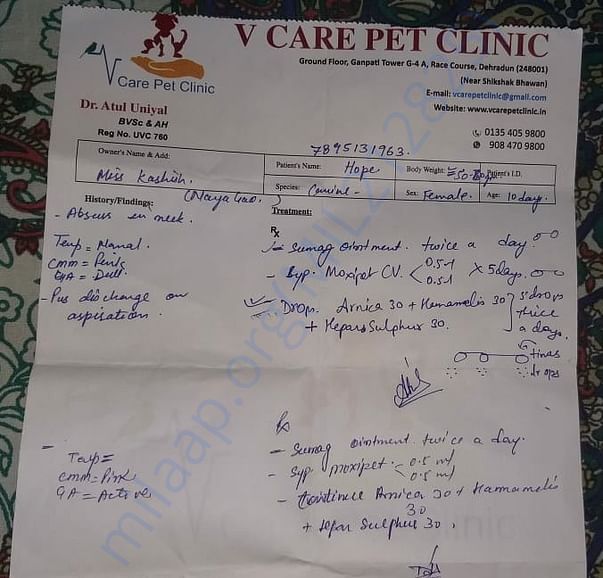 V CARE PET CLINIC
Ground Floor, Ganpati Tower G-4 A, Race Course, Dehradun (248001)
(Near Shikshak Bhawan)
E-mail: vcarepetclinic@gmail.com
Website: www.vcarepetclinic.in
V Care Pet Clinic
Dr. Atul Uniyal
BVSc & AH
Reg No. UVC 760
0135 405 9800
908 470 9800
7895131963.
Owner's Name & Add:
Miss Kashish
(Naya Gao.)
Patient's Name: Hope
Body Weight:
Patient's I.D.
Species: Canine-
Sex: Female.
Age: 10 day.
History/Findings:
- Absess in neck.
Temp = Normal.
CMM = Pink
GA = Dull.
- Pus discharge on
aspiration.
Treatment:
Rx
- Sumag Ointment. twice a day.
- Syp. Moxipet CV. < 0.5ml 0.5ml X 5days.
- Drop. Arnica 30 + Hamamelis 30
+ Hepar Sulphur 30.
5 drops
thice
a days.
times
drops
Rx
- Sumag ointment. twice a day.
- Syp moxipet. < 0.5 ml 0.5 ml
- Continue Arnica 30 + Hamamelis
30
+ Hepar Sulphur 30.
Temp =
CMM = Pink
GA = Active
milaap.org